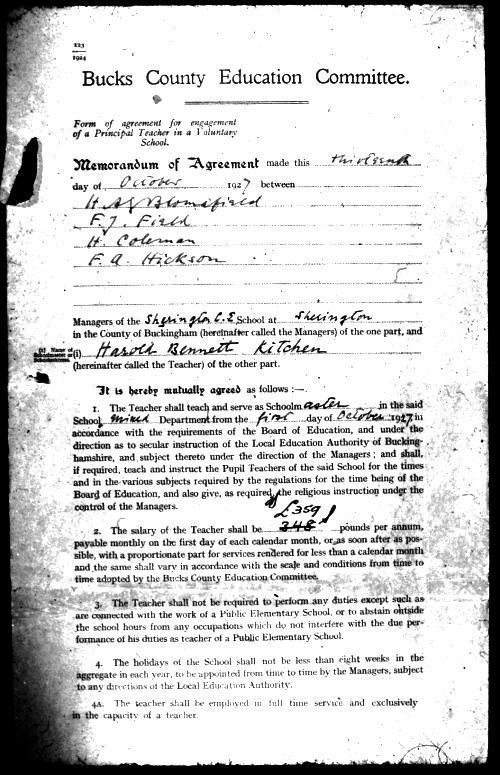 123
1924
Bucks County Education Committee.
Form of agreement for engagement
of a Principal Teacher in a Voluntary
School.
Memorandum of Agreement made this thirteenth
day of October 1927 between
H. Blomefield
F. J. Field
H. Coleman
F. A. Hickson
5
Managers of the Sherington C.E. School at Sherington
in the County of Buckingham (hereinafter called the Managers) of the one part, and
(1) Name of
Schoolmaster or
Schoolmistress.
(1) Harold Bennett Kitchen
(hereinafter called the Teacher) of the other part.
It is hereby mutually agreed as follows :—
1. The Teacher shall teach and serve as Schoolmaster in the said
School mixed Department from the first day of October 1927 in
accordance with the requirements of the Board of Education, and under the
direction as to secular instruction of the Local Education Authority of Bucking-
hamshire, and subject thereto under the direction of the Managers ; and shall,
if required, teach and instruct the Pupil Teachers of the said School for the times
and in the various subjects required by the regulations for the time being of the
Board of Education, and also give, as required, the religious instruction under the
control of the Managers.
£359
2. The salary of the Teacher shall be 348 pounds per annum,
payable monthly on the first day of each calendar month, or as soon after as pos-
sible, with a proportionate part for services rendered for less than a calendar month
and the same shall vary in accordance with the scale and conditions from time to
time adopted by the Bucks County Education Committee.
3. The Teacher shall not be required to perform any duties except such as
are connected with the work of a Public Elementary School, or to abstain outside
the school hours from any occupations which do not interfere with the due per-
formance of his duties as teacher of a Public Elementary School.
4. The holidays of the School shall not be less than eight weeks in the
aggregate in each year, to be appointed from time to time by the Managers, subject
to any directions of the Local Education Authority.
4A. The teacher shall be employed in full time service and exclusively
in the capacity of a teacher.